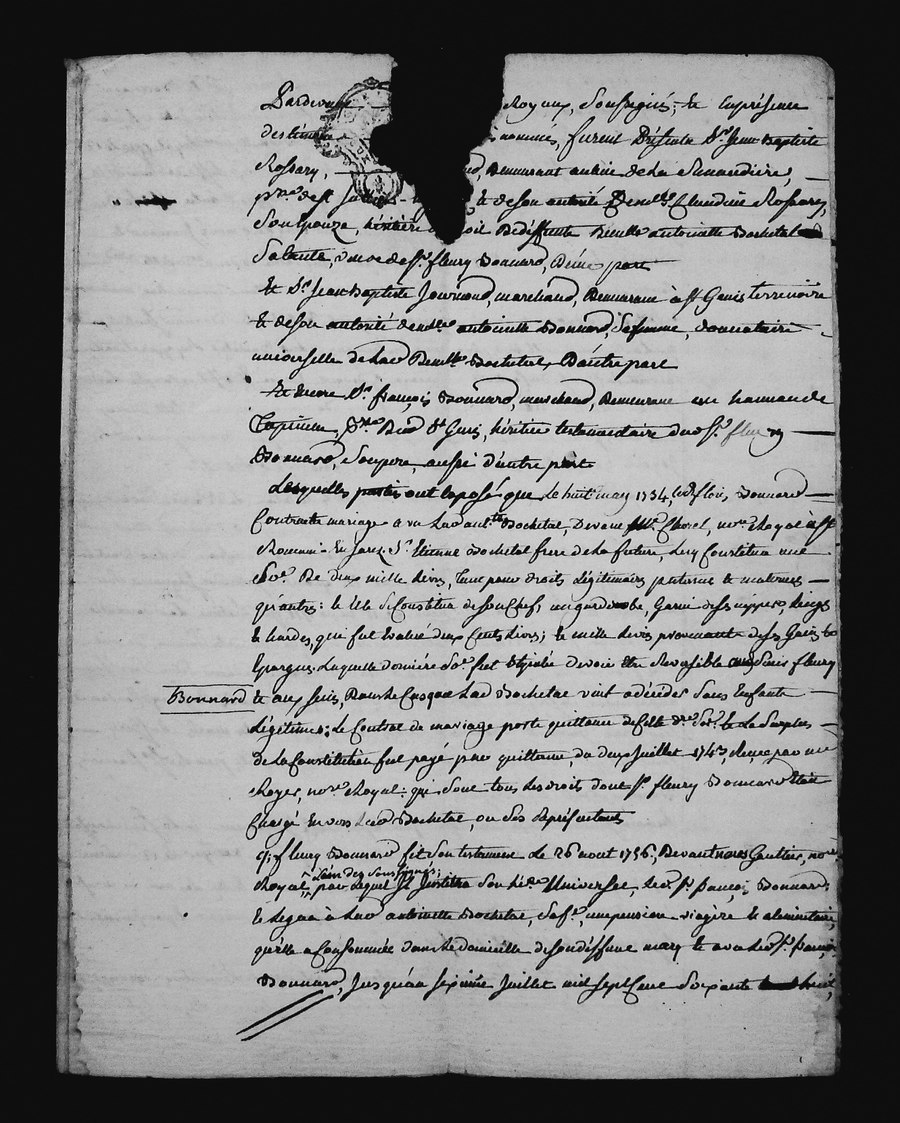 Pardevant Royaux, Soussignés, & En présence
des témoins nommés, furent Présents Sr. Jean Baptiste
Rossary, Demeurant au lieu de La
& de son autorité Demlle. Claudine Rossary,
Son Epouze, héritière Deffunte Demlle antoinette Bochetal
Sa tante, veuve de Sr. fleury Bonnard, D'une part
Et Sr. Jean Baptiste Journoud, marchand, Demeurant à St Genis terrenoire
& de son autorité demlle antoinette Bonnard, Sa femme, donnataire
universelle de Lad Demlle Bochetal, D'autre part
Et Encore Sr. françois Bonnard, marchand, Demeurant au hameau de
St Genis, héritier testamentaire dud Sr. fleury
Bonnard, Son père, aussi d'autre part
Lesquelles parties ont Exposé que Le huit may 1734, led fleury Bonnard
Contracta mariage avec Lad antte Bochetal, Devant Me. Chorel, nore Royal à St
Romain-En-Jarez, Sr. Etienne Bochetal frere de La future, Luy Constitua une
So.e De deux mille Livres, tant pour droits Légitimaires paternels & maternels
qu'autres: & Elle Se Constitua de Son Chef, un garderobe, Garni de Ses nippes, Linges
& hardes, qui fut Evalué deux Cents Livres; & mille Livres provenant de Ses Gains &
Epargnes, Laquelle dernière So.e fut Stipulée devoir Etre Reversible aud Sieur fleury
Bonnard & aux siens, Dans Le Cas que Lad Bochetal vint à décéder Sans Enfants
Légitimes; Le Contrat de mariage porte quittance de Cette dre. So.e & Le Surplus
de La Constitution fut payé par quittance du deux Juillet 1743, reçue par me
Royer, nore Royal: qui Sont tous Les droits dont Sr. fleury Bonnard Etoit
Chargé Envers Lad Bochetal, ou Ses Représentants
Sr. fleury Bonnard fit Son testament Le 26 aout 1756, Devant me Gaultier, nore
l'un des Soussignés;
Royal, par Lequel Il Institua Son hér. Universel, led Sr. françois Bonnard;
& Legua à Lad antoinette Bochetal, Sa fe., une pension viagère & alimentaire,
qu'elle a Consommée dans Le domicile de Son deffunt mary & avec led Sr. françois
Bonnard, Jusqu'au Juillet mil Sept Cent Soixante huit,